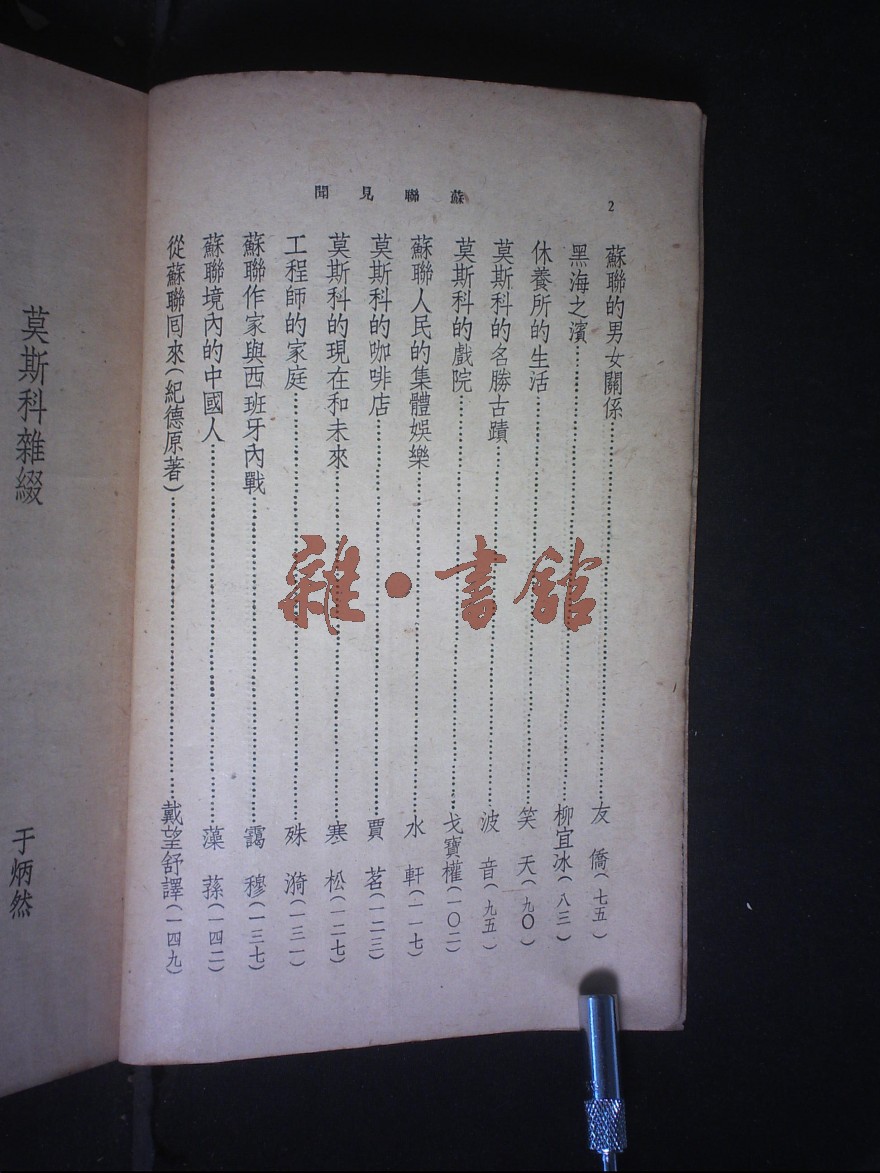 蘇聯見聞
2
蘇聯的男女關係……友僑(七五)
黑海之濱……柳宜冰(八三)
休養所的生活……笑天(九〇)
莫斯科的名勝古蹟……波音(九五)
莫斯科的戲院……戈寶權(一〇二)
蘇聯人民的集體娛樂……水軒(一一七)
莫斯科的咖啡店……賈茗(一二三)
莫斯科的現在和未來……寒松(一二七)
工程師的家庭……殊漪(一三一)
蘇聯作家與西班牙內戰……靄穆(一三七)
蘇聯境內的中國人……藻蓀(一四二)
從蘇聯囘來(紀德原著)……戴望舒譯(一四九)
莫斯科雜綴
于炳然
雜·書館